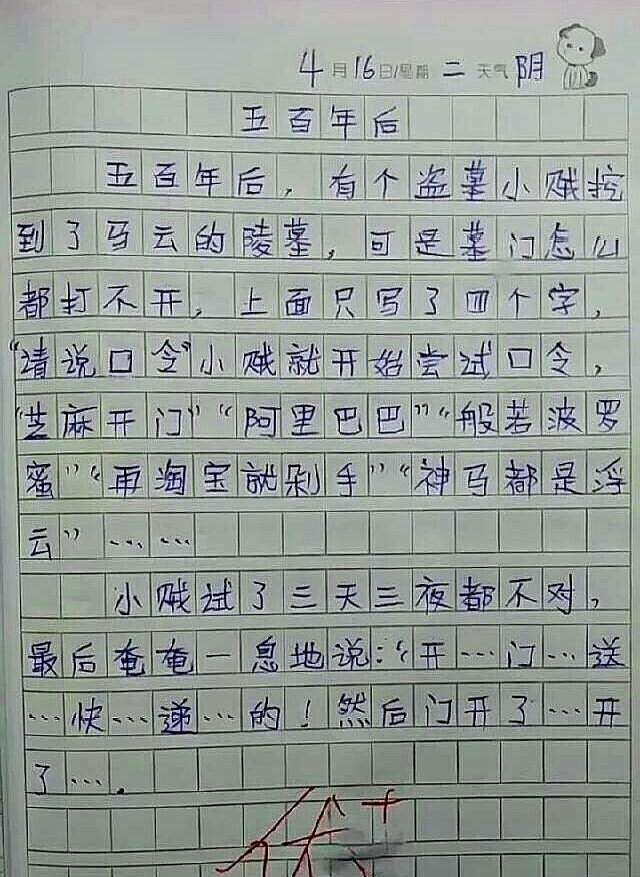 4月16日/星期二 天气阴
五百年后
五百年后，有个盗墓小贼挖
到了马云的陵墓，可是墓门怎么
都打不开，上面只写了四个字，
“请说口令”小贼就开始尝试口令，
“芝麻开门”“阿里巴巴”“般若波罗
蜜”“再淘宝就剁手”“神马都是浮
云”……
小贼试了三天三夜都不对，
最后奄奄一息地说：“开…门…送
…快…递…的！然后门开了…开
了….
优+